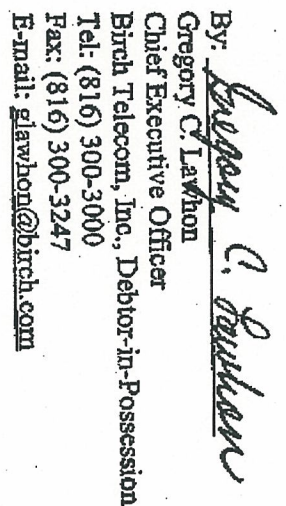 By: Gregory C. Lawhon
Gregory C. Lawhon
Chief Executive Officer
Birch Telecom, Inc., Debtor-in-Possession
Tel: (816) 300-3000
Fax: (816) 300-3247
E-mail: glawhon@birch.com